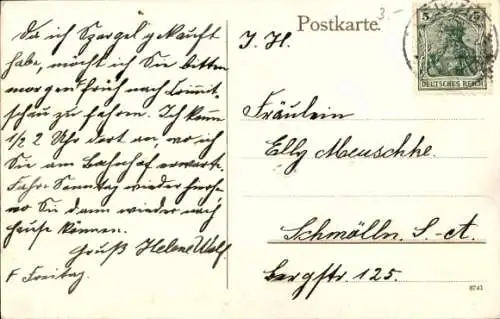 Da ich Spargel gekauft
habe, möcht ich Sie bitten
morgen früh nach Lomit-
schau zu fahren. Ich komm
1/2 2 Uhr dort an, wo ich
Sie am Bahnhof erwarte.
Fahre Sonntag wieder
wo Sie dann wieder mich
können.
Gruß Helene Wolf.
Freitag.
Postkarte.
3.-
5 5
DEUTSCHES REICH
I. H.
Fräulein
Elly Meuschke.
Schmölln. S.-A.
Bergstr. 125.
8741